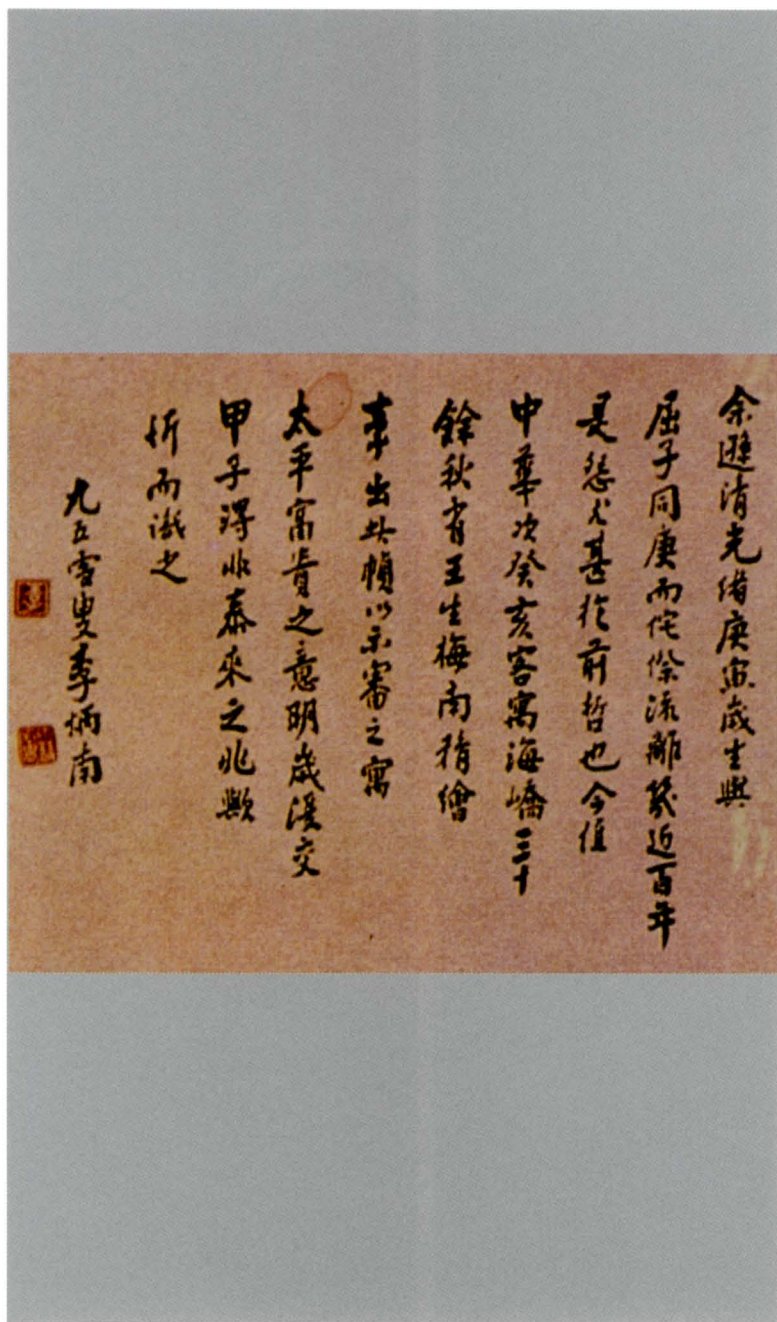 余遜清光緒庚寅歲生與
屈子同庚而侘傺流離幾近百年
是愁尤甚於前哲也今值
中華次癸亥客寓海嶠三十
餘秋有王生梅南精繪
牽出此幀以示審之寓
太平富貴之意明歲復交
甲子得非泰來之兆歟
忻而識之
九五雪叟李炳南